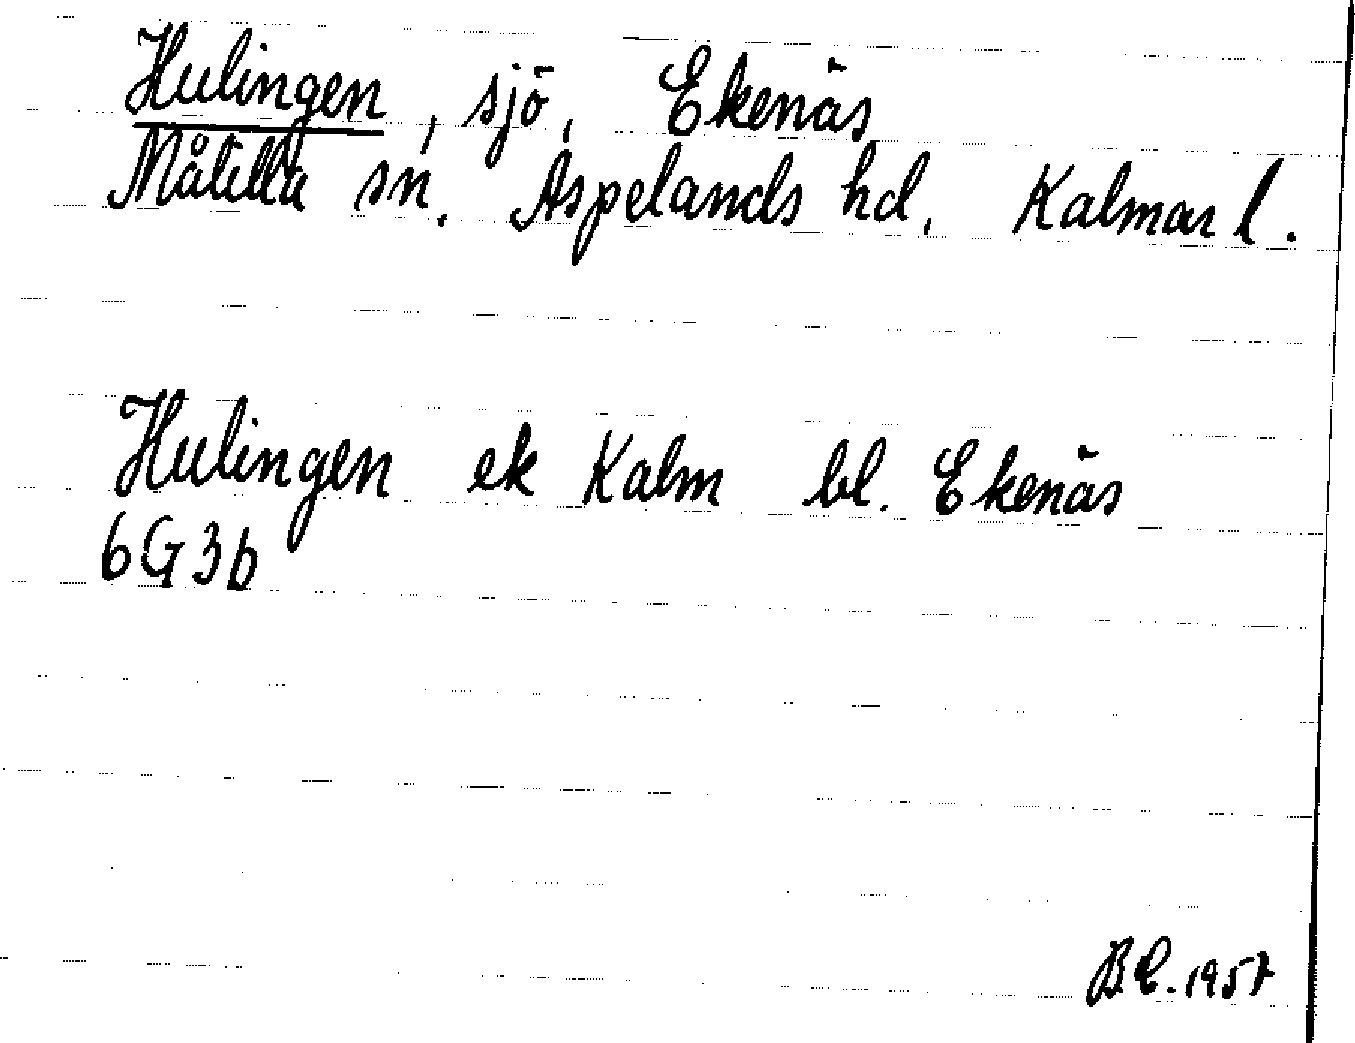 Hulingen, sjö, Ekenäs
Målilla sn. Aspelands hd. Kalmar l.
Hulingen ek Kalm bl. Ekenäs
6G3b
B.C. 1957